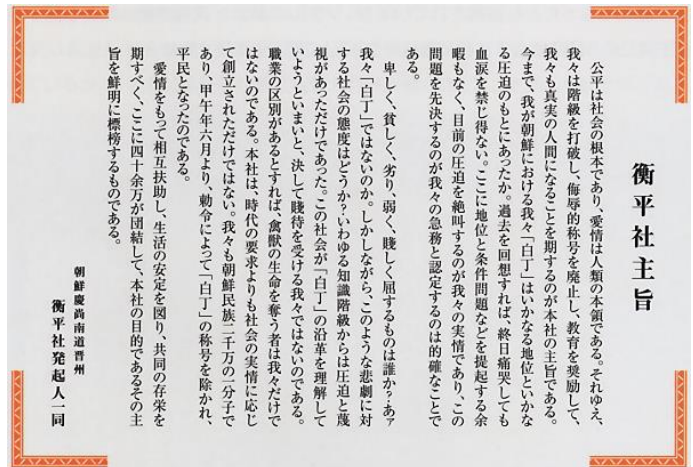 衡平社主旨
公平は社会の根本であり、愛情は人類の本領である。それゆえ、
我々は階級を打破し、侮辱的称号を廃止し、教育を奨励して、
我々も真実の人間になることを期するのが本社の主旨である。
今まで、我が朝鮮における我々「白丁」はいかなる地位といかな
る圧迫のもとにあったか。過去を回想すれば、終日痛哭しても
血涙を禁じ得ない。ここに地位と条件問題などを提起する余
暇もなく、目前の圧迫を絶叫するのが我々の実情であり、この
問題を先決するのが我々の急務と認定するのは的確なことで
ある。
卑しく、貧しく、劣り、弱く、賤しく屈するものは誰か?あァ
我々「白丁」ではないのか。しかしながら、このような悲劇に対
する社会の態度はどうか?いわゆる知識階級からは圧迫と蔑
視があっただけであった。この社会が「白丁」の沿革を理解して
いようといまいと、決して賤待を受ける我々ではないのである。
職業の区別があるとすれば、禽獣の生命を奪う者は我々だけで
はないのである。本社は、時代の要求よりも社会の実情に応じ
て創立されただけではない。我々も朝鮮民族二千万の一分子で
あり、甲午年六月より、勅令によって「白丁」の称号を除かれ、
平民となったのである。
愛情をもって相互扶助し、生活の安定を図り、共同の存栄を
期すべく、ここに四十余万が団結して、本社の目的であるその主
旨を鮮明に標榜するものである。
朝鮮慶尚南道晋州
衡平社発起人一同